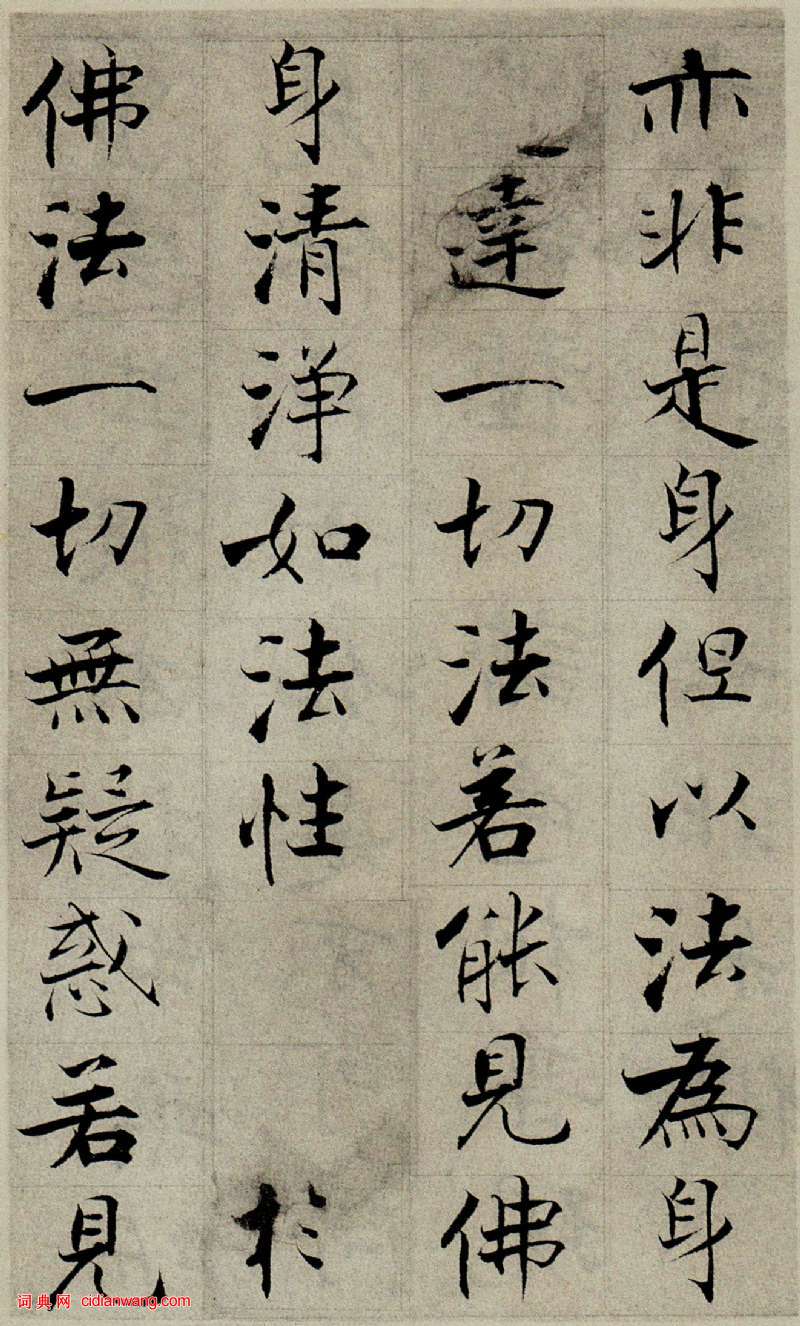 亦非是身但以法為身
達一切法若能見佛
身清淨如法性 於
佛法一切無疑惑若見
词典网 cidianwang.com